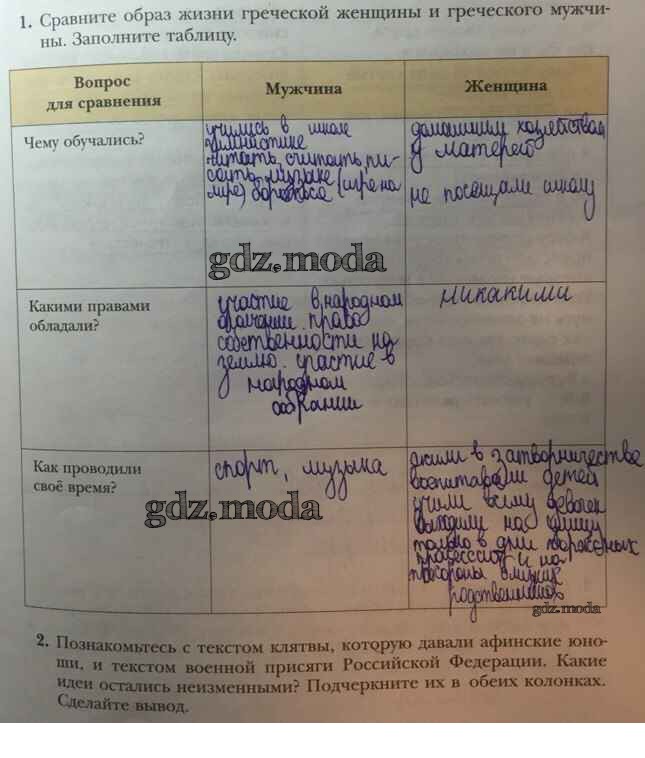 1. Сравните образ жизни греческой женщины и греческого мужчи-
ны. Заполните таблицу.
Вопрос
для сравнения
Мужчина
Женщина
Чему обучались?
учились в школе
гимнастике
читать, считать, пи-
сать, музыке (игре на
лире) борьба
домашним хозяйствам
у матерей
не посещали школу
gdz.moda
Какими правами
обладали?
участие в народном
право
собственности на
землю. участие в
народном
собрании
никакими
Как проводили
своё время?
спорт, музыка
жили в затворничестве
воспитывали детей
учили всему девочек
выходили на улицу
только в дни
процессий и на
похороны близких
родственников
gdz.moda
gdz.moda
2. Познакомьтесь с текстом клятвы, которую давали афинские юно-
ши, и текстом военной присяги Российской Федерации. Какие
идеи остались неизменными? Подчеркните их в обеих колонках.
Сделайте вывод.